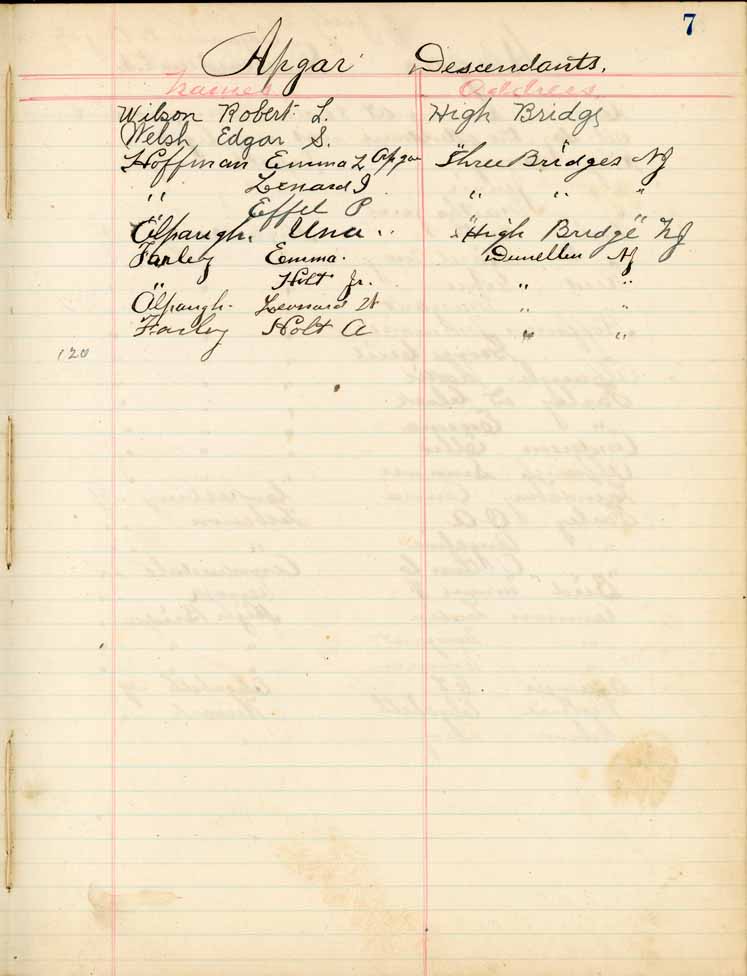 7
Apgar Descendants.
Names Address
Wilson Robert L. High Bridge
Welsh Edgar S.
Hoffman Emma L Apgar Three Bridges NJ
" Lenard J " " "
" Effel P " "
Alpaugh. Una .. High Bridge NJ
Farley Emma. Dunellen NJ
" Holt Jr. " "
Alpaugh. Leonard H " "
Farley Holt A " "
120